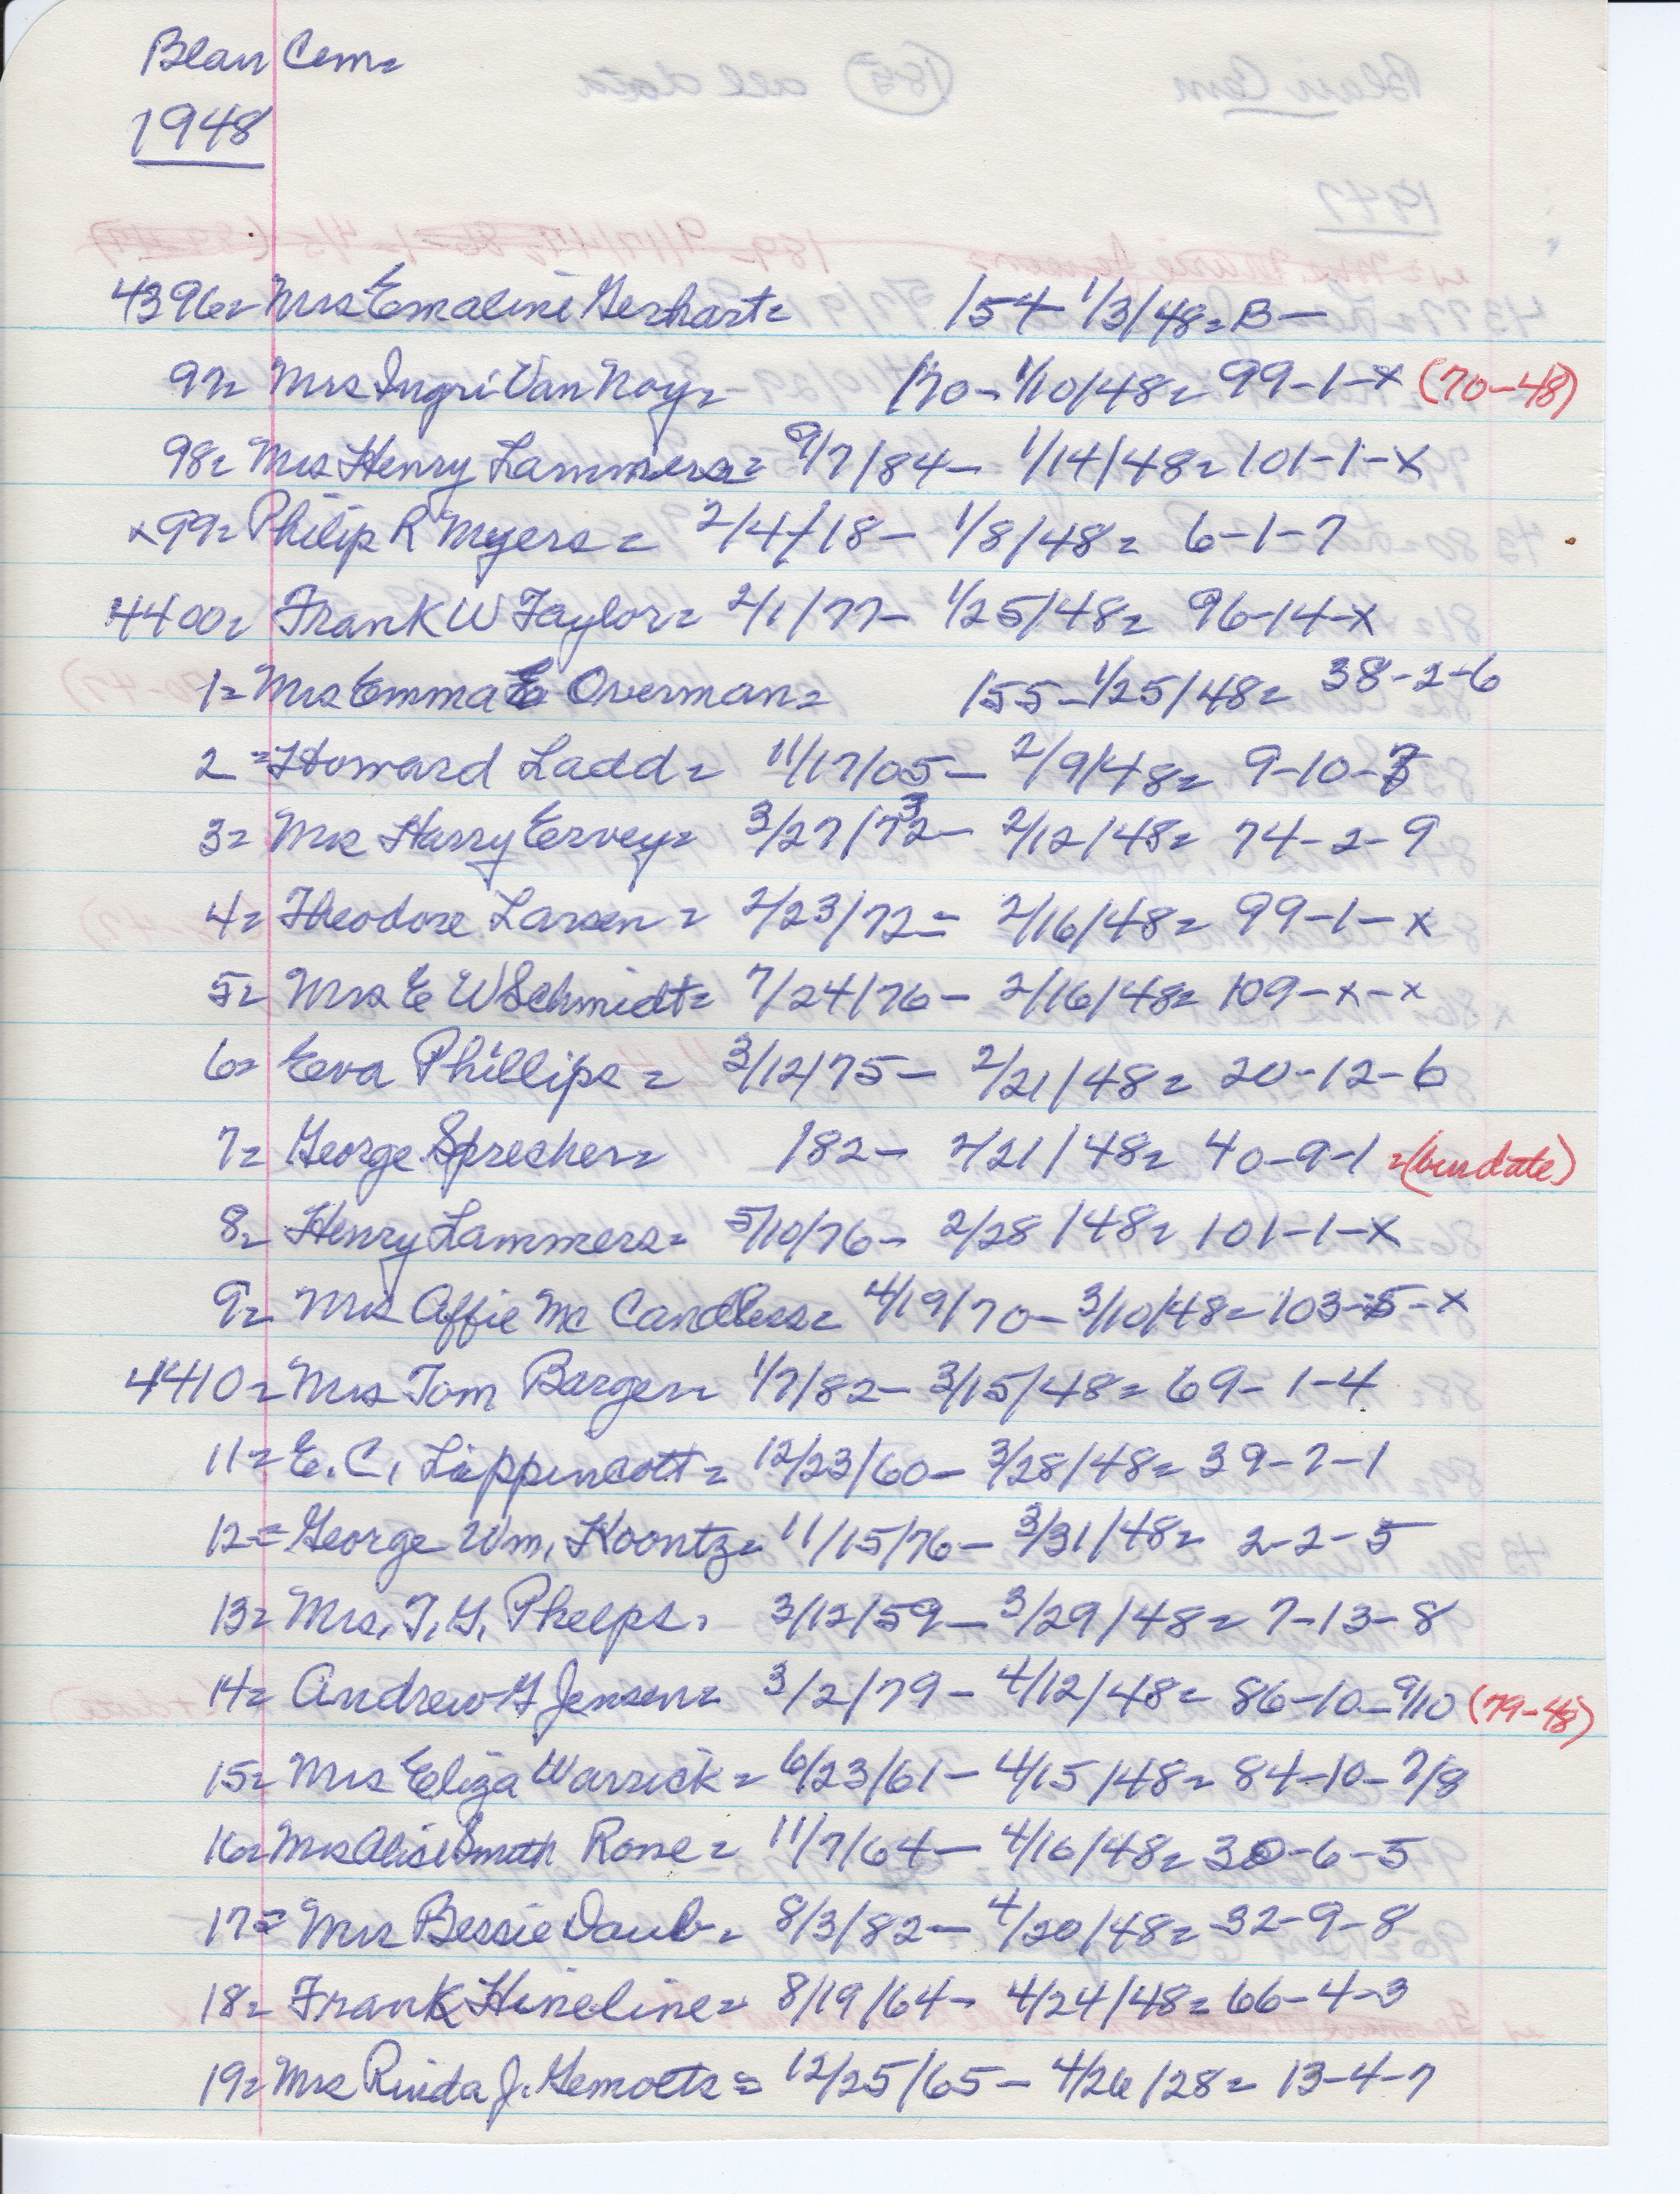 Blair Cem=
1948
4396= Mrs Emaline Gerhart= 154 1/3/48= B—
97= Mrs Ingri Van Noy= 170- 1/10/48= 99-1-x (70-48)
98= Mrs Henry Lammers= 9/7/84- 1/14/48= 101-1-x
x99= Philip R Myers= 2/4/18- 1/8/48= 6-1-7
4400= Frank W Taylor= 2/1/77- 1/25/48= 96-14-x
1= Mrs Emma E Overman= 155-1/25/48= 38-2-6
2= Howard Ladd= 11/17/05- 2/9/48= 9-10-
3= Mrs Harry Ervey= 3/27/73- 2/12/48= 74-2-9
4= Theodore Larsen= 2/23/72- 2/16/48= 99-1-x
5= Mrs E W Schmidt= 7/24/76- 2/16/48= 109-x-x
6= Eva Phillips= 3/12/75- 2/21/48= 20-12-6
7= George Sprecher= 182- 2/21/48= 40-9-1 =(bur date)
8= Henry Lammers= 5/10/76- 2/28/48= 101-1-x
9= Mrs Affie Mc Candless= 4/19/70- 3/10/48= 103-5-x
4410= Mrs Tom Barger= 1/7/82- 3/15/48= 69-1-4
11= E. C. Lippincott= 12/23/60- 3/28/48= 39-7-1
12= George Wm. Koontz= 11/15/76- 3/31/48= 2-2-5
13= Mrs. T. G. Phelps. 3/12/59- 3/29/48= 7-13-8
14= Andrew G Jensen= 3/2/79- 4/12/48= 86-10-9/10 (79-48)
15= Mrs Eliza Warrick= 6/23/61- 4/15/48= 84-10-7/8
16= Mrs Alice Smith Rose= 11/7/64- 4/16/48= 30-6-5
17= Mrs Bessie Daub= 8/3/82- 4/20/48= 32-9-8
18= Frank Hineline= 8/19/64- 4/24/48= 66-4-3
19= Mrs Rinda J. 12/25/65- 4/26/28= 13-4-7